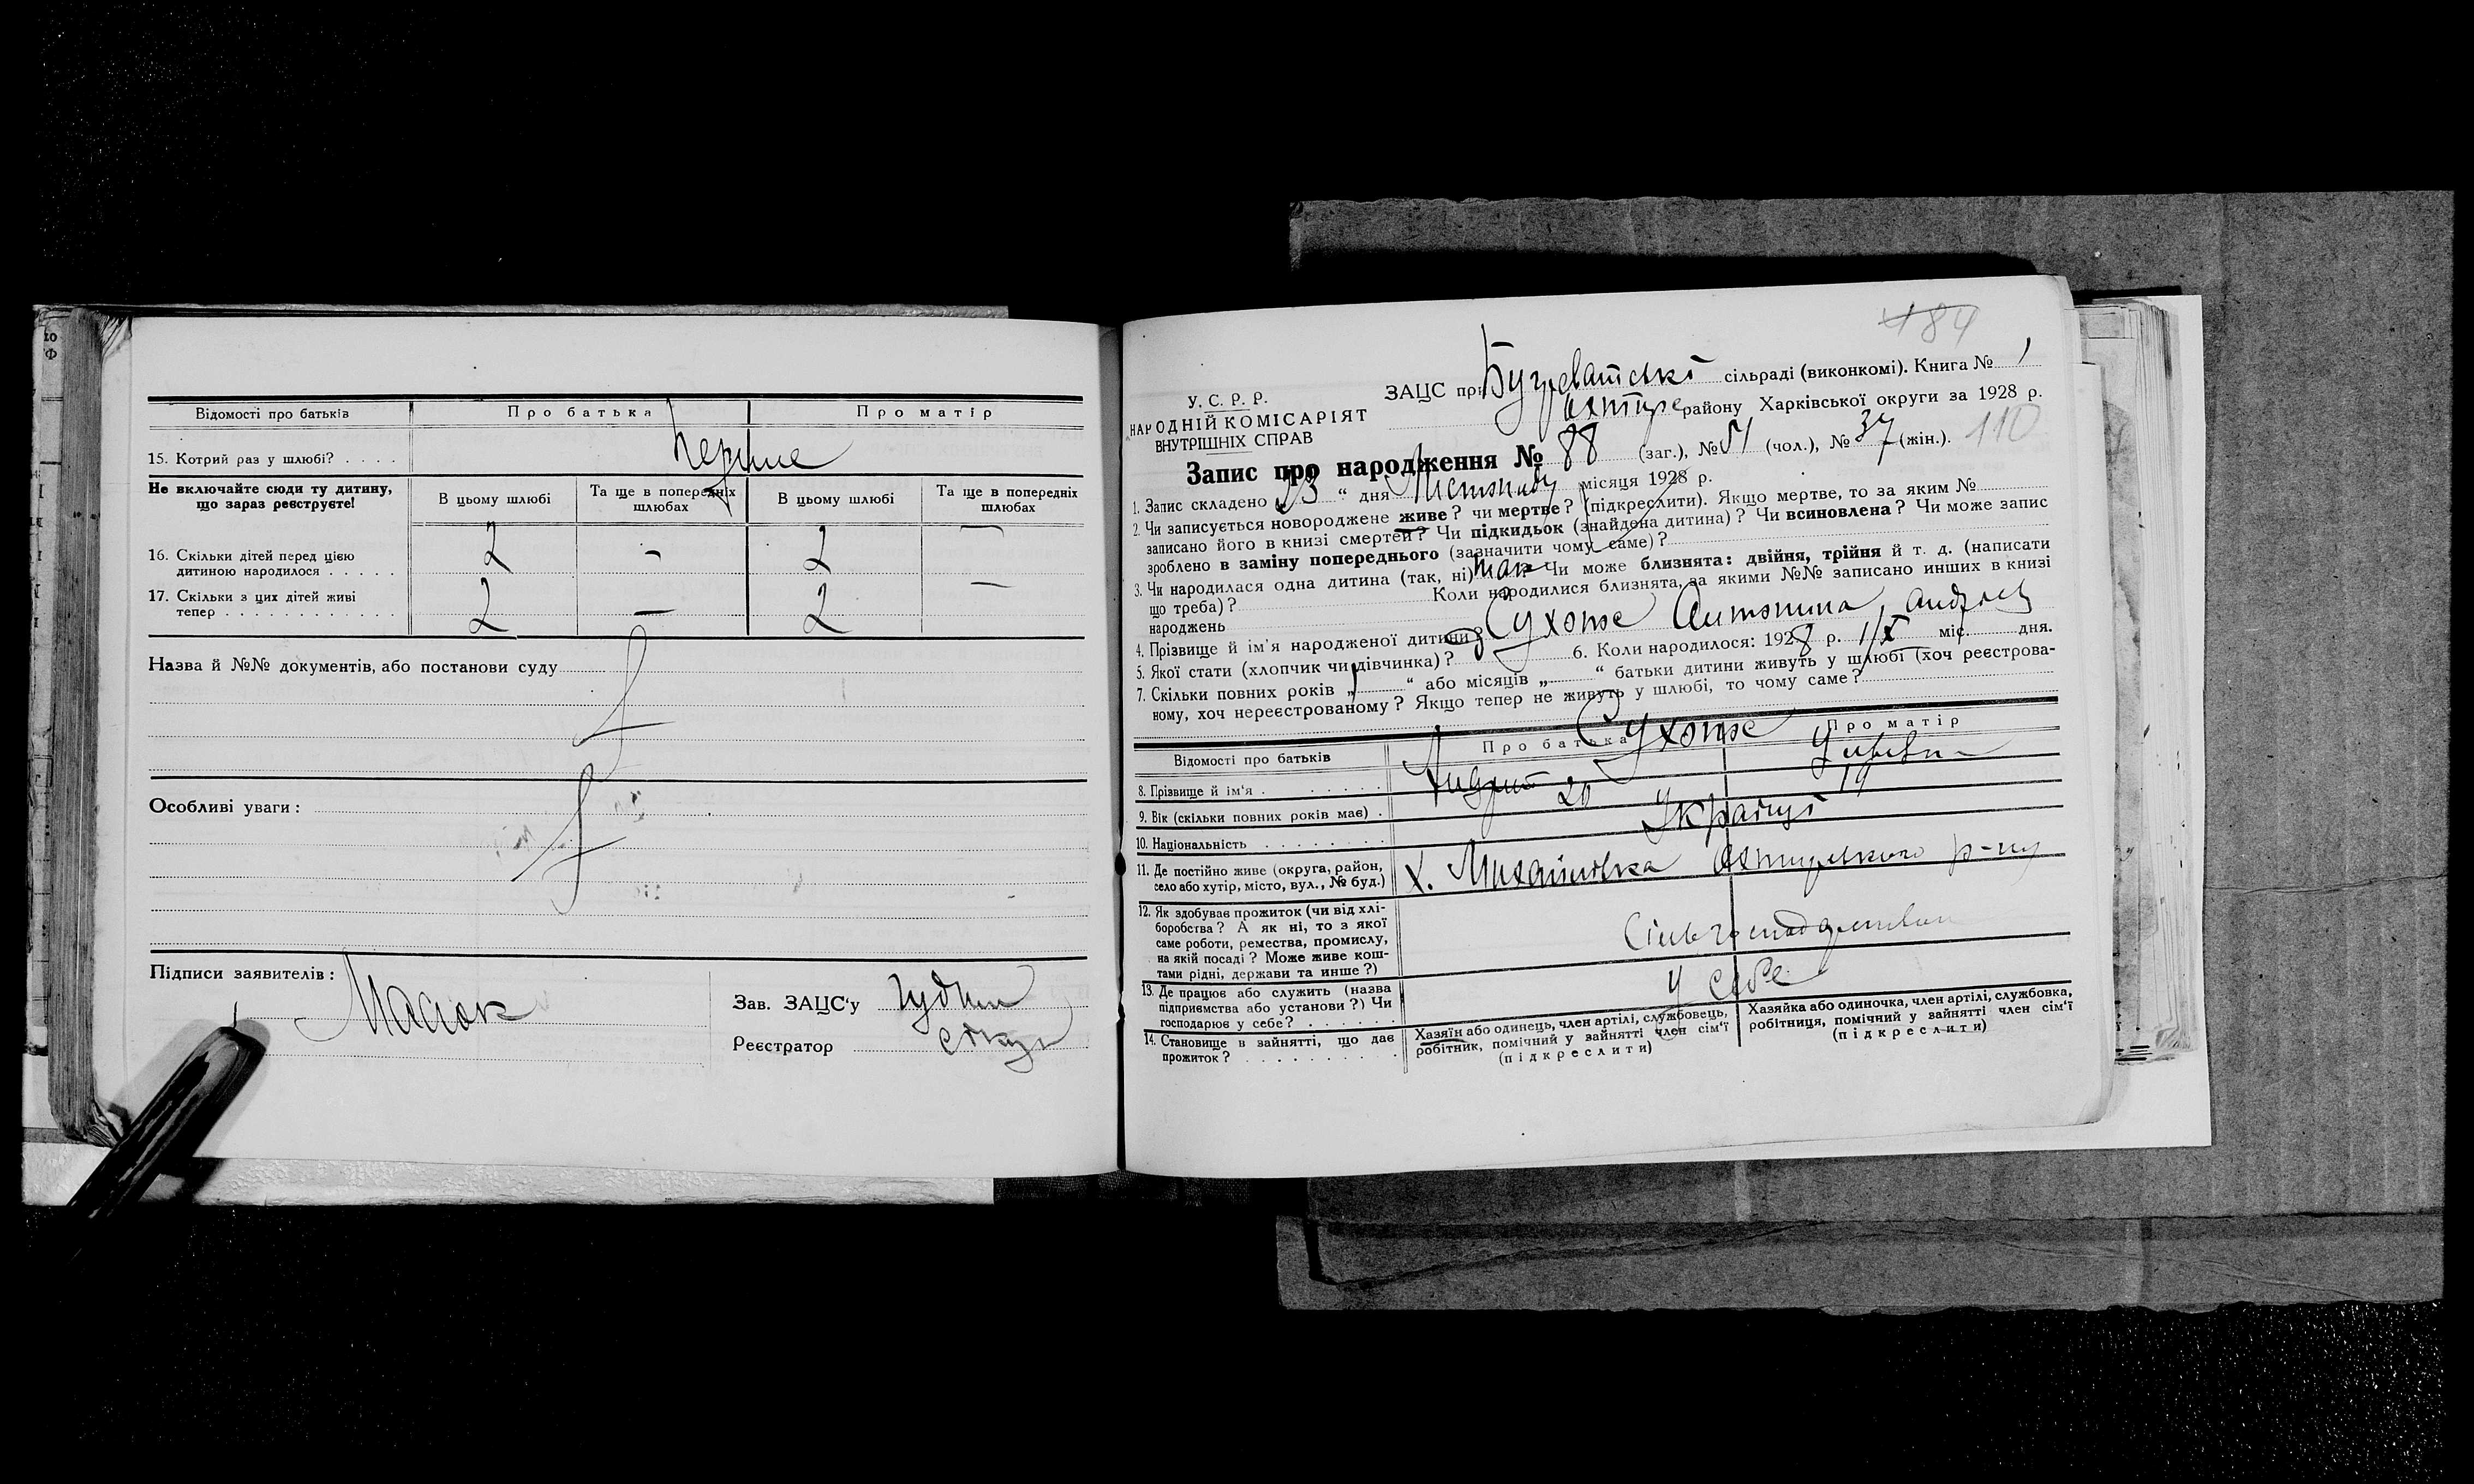 Відомості про батьків
Про батька
Про матір
15. Котрий раз у шлюбі? . . . .
перше
Не включайте сюди ту дитину, що зараз реєструєте!
В цьому шлюбі
Та ще в попередніх шлюбах
В цьому шлюбі
Та ще в попередніх шлюбах
16. Скільки дітей перед цією
дитиною народилося . . . . .
2 - 2 —
17. Скільки з цих дітей живі
тепер . . . . . . . . . . .
2 — 2 —
Назва й №№ документів, або постанови суду
Особливі уваги:
Підписи заявителів:
Зав. ЗАЦС'у
Реєстратор
484
У. С. Р. Р.
НАРОДНІЙ КОМІСАРІЯТ
ВНУТРІШНІХ СПРАВ
ЗАЦС при Бугреватські сільраді (виконкомі). Книга № 1
Охтирс району Харківської округи за 1928 р.
110
Запис про народження № 88 (заг.), № 51 (чол.), № 37 (жін.).
1. Запис складено 23 “ дня Листопаду місяця 1928 р.
2. Чи записується новороджене живе? чи мертве? (підкреслити). Якщо мертве, то за яким №
записано його в книзі смертей? Чи підкидьок (знайдена дитина)? Чи всиновлена? Чи може запис
зроблено в заміну попереднього (зазначити чому саме)?
3. Чи народилася одна дитина (так, ні) так Чи може близнята: двійня, трійня й т. д. (написати
що треба)? Коли народилися близнята, за якими №№ записано инших в книзі
народжень
4. Прізвище й ім'я народженої дитини? Сухоте Антонина Андрієв
5. Якої стати (хлопчик чи дівчинка)? 6. Коли народилося: 1928 р. 1/X міс. дня.
7. Скільки повних років „ “ або місяців „ “ батьки дитини живуть у шлюбі (хоч реєстрова-
ному, хоч нереєстрованому? Якщо тепер не живуть у шлюбі, то чому саме?
Відомості про батьків
Про батька
Про матір
8. Прізвище й ім'я . . . . . .
Сухоте
Андрій
9. Вік (скільки повних років має) .
20 19
10. Національність . . . . . . . .
Українці
11. Де постійно живе (округа, район,
село або хутір, місто, вул., № буд.)
х. Михайлівка Охтирського р-ну
12. Як здобуває прожиток (чи від хлі-
боробства? А як ні, то з якої
саме роботи, ремества, промислу,
на якій посаді? Може живе кош-
тами рідні, держави та инше?)
13. Де працює або служить (назва
підприємства або установи?) Чи
господарює у себе? . . . . . .
У себе
14. Становище в зайнятті, що дає
прожиток? . . . . . . . . .
Хазяїн або одинець, член артілі, службовець,
робітник, помічний у зайнятті член сім'ї
(підкреслити)
Хазяйка або одиночка, член артілі, службовка,
робітниця, помічний у зайнятті член сім'ї
(підкреслити)